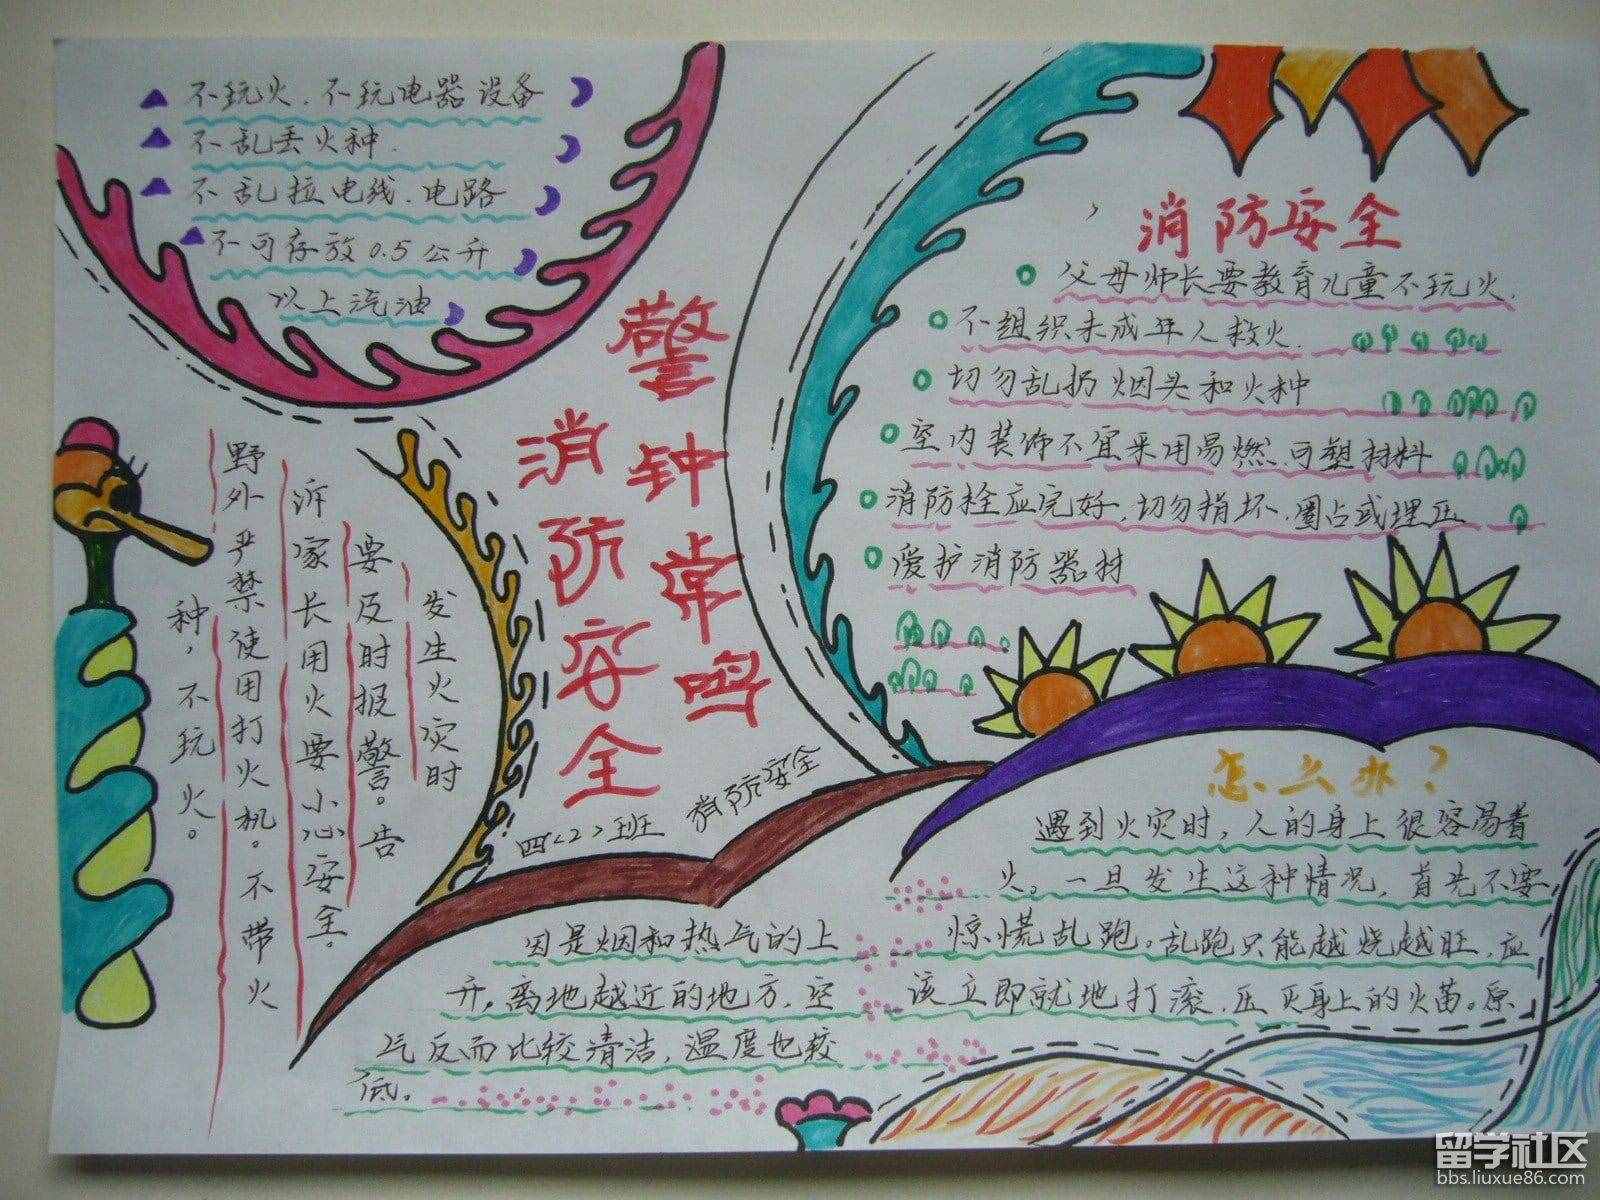 不玩火.不玩电器设备
不乱丢火种.
不乱拉电线.电路
不可存放0.5公升
以上汽油
警钟常鸣
消防安全
消防安全
父母师长要教育儿童不玩火.
不组织未成年人救火.
切勿乱扔烟头和火种
室内装饰不宜采用易燃.可塑材料
消防栓应完好,切勿损坏.圈占或埋压
爱护消防器材
发生火灾时
要及时报警。告
诉家长用火要小心安全.
野外严禁使用打火机。不带火
种,不玩火。
四<2>班
消防安全
怎么办?
遇到火灾时,人的身上很容易着
火。一旦发生这种情况,首先不要
惊慌乱跑。乱跑只能越烧越旺.应
该立即就地打滚.压灭身上的火苗。原
因是烟和热气的上
升。离地越近的地方.空
气反而比较清洁,温度也较
低。
留学社区
bbs.liuxue86.com